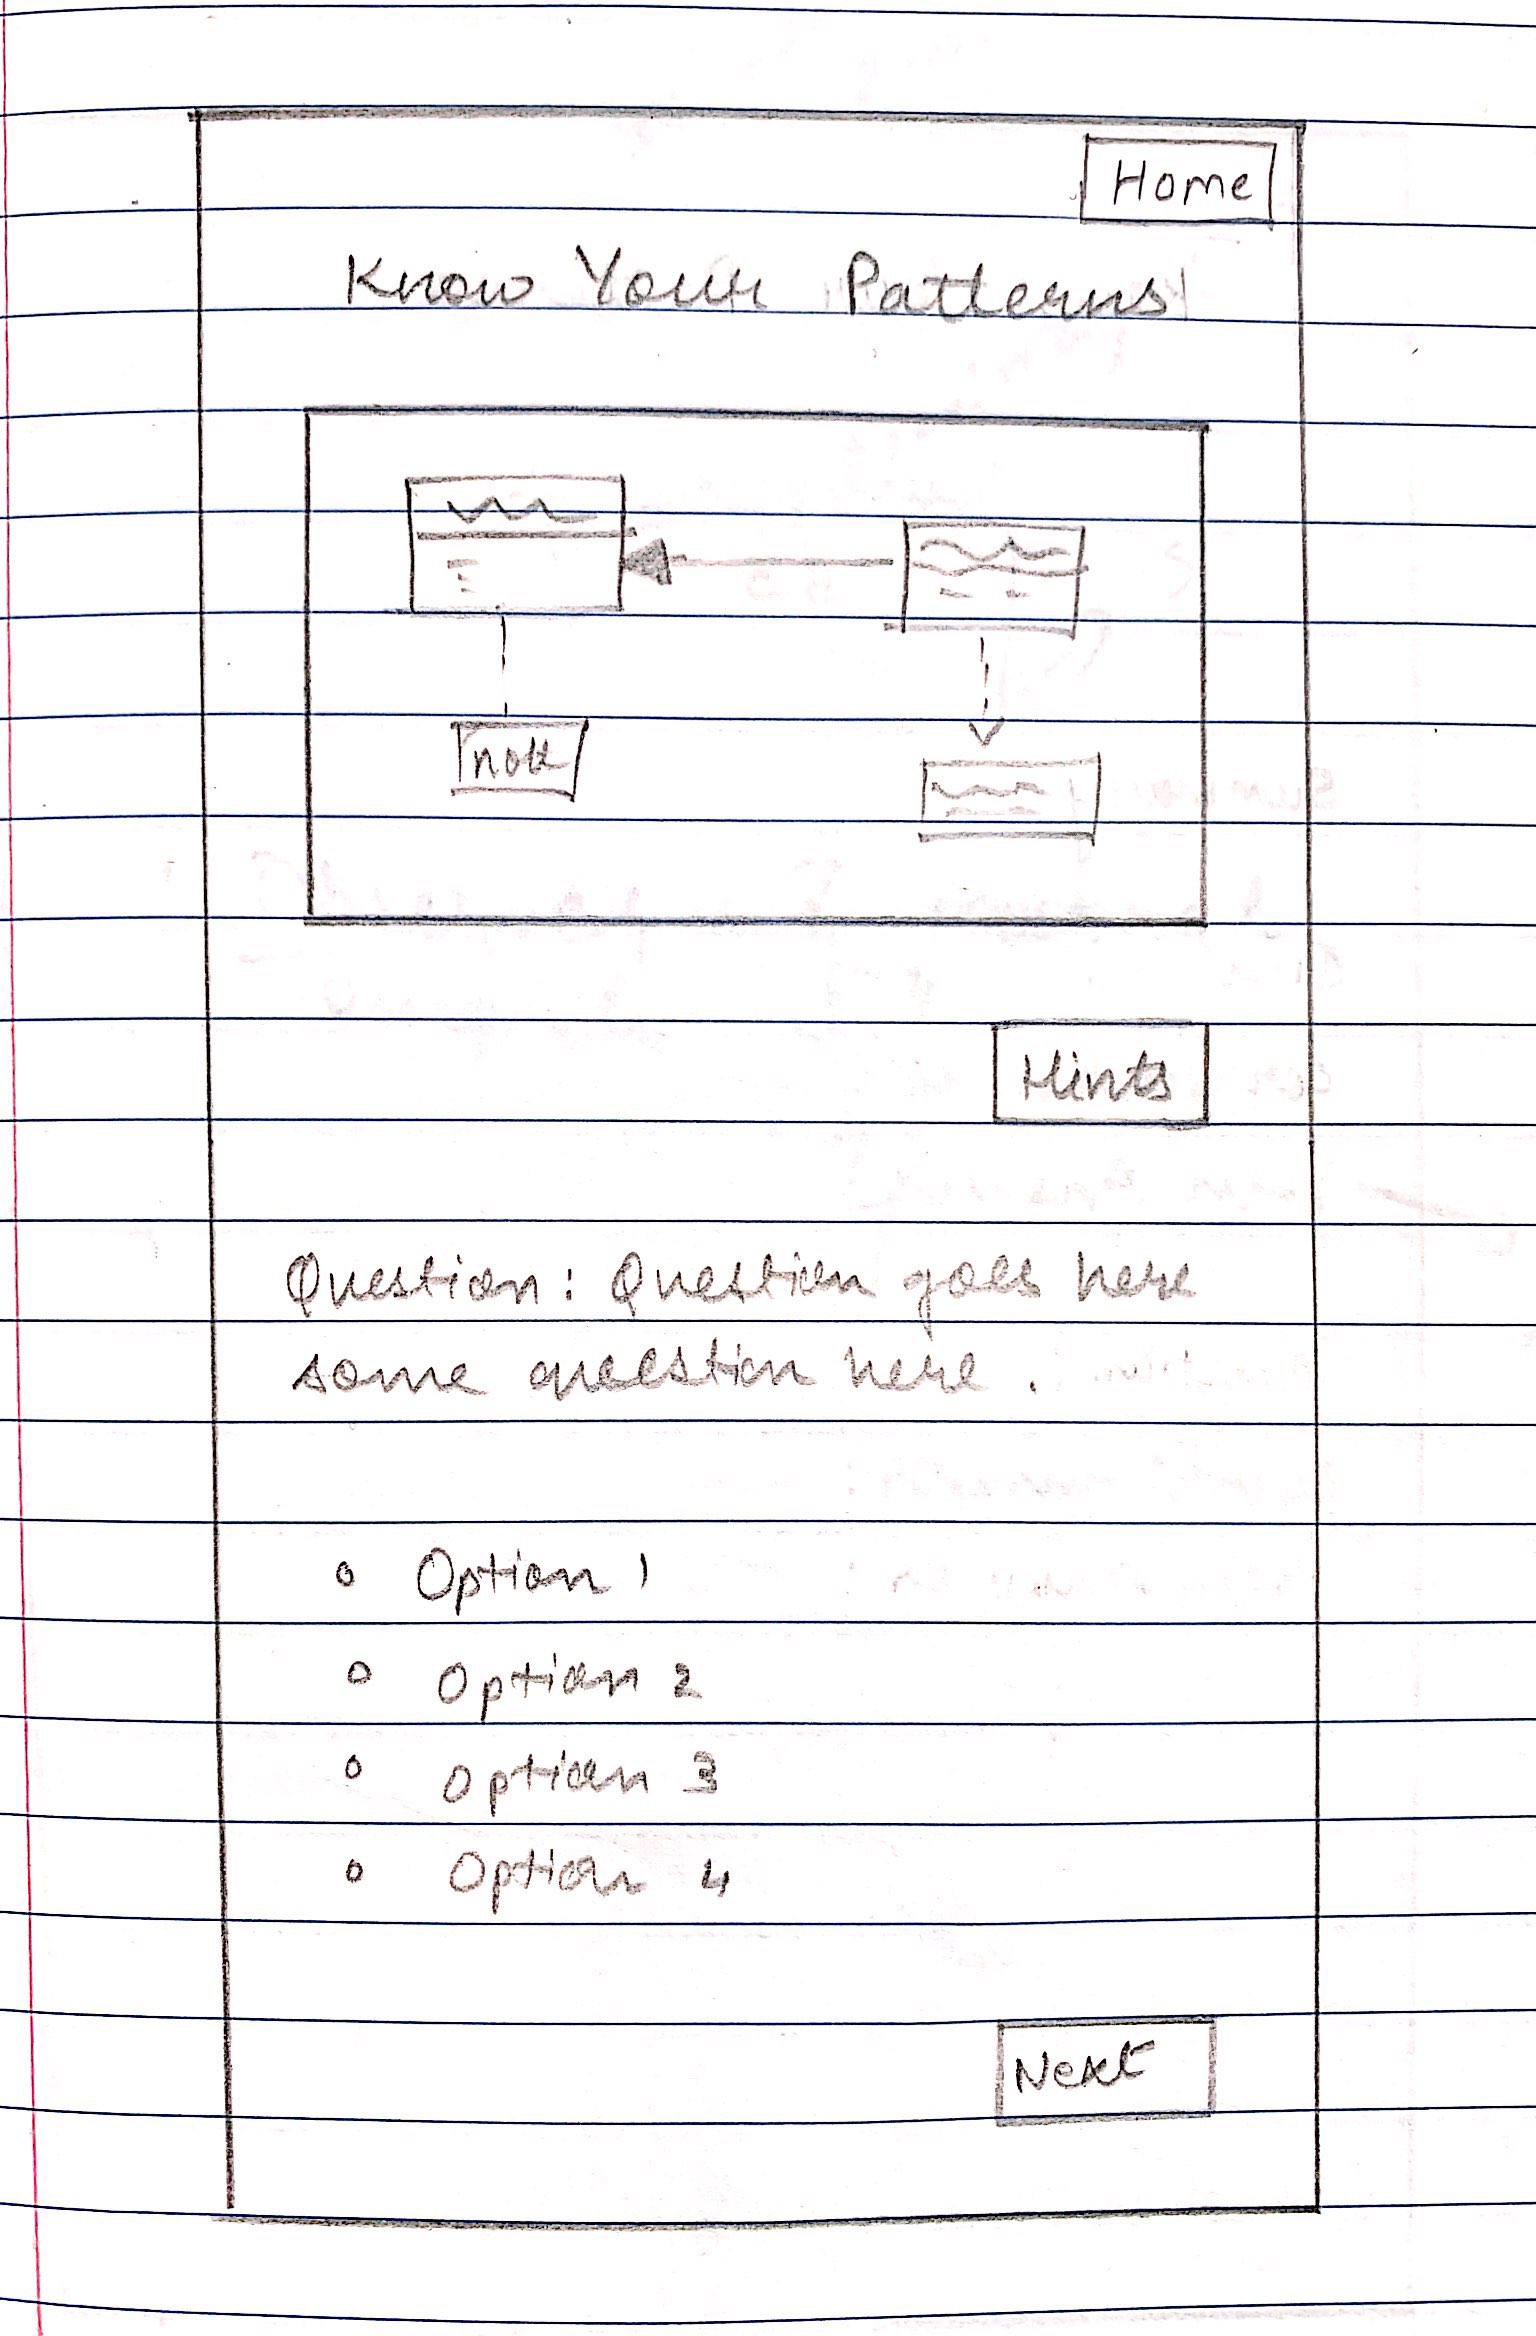 Home
Know Your Patterns
note
Hints
Question: Question goes here
some question here.
Option 1
Option 2
Option 3
Option 4
Next